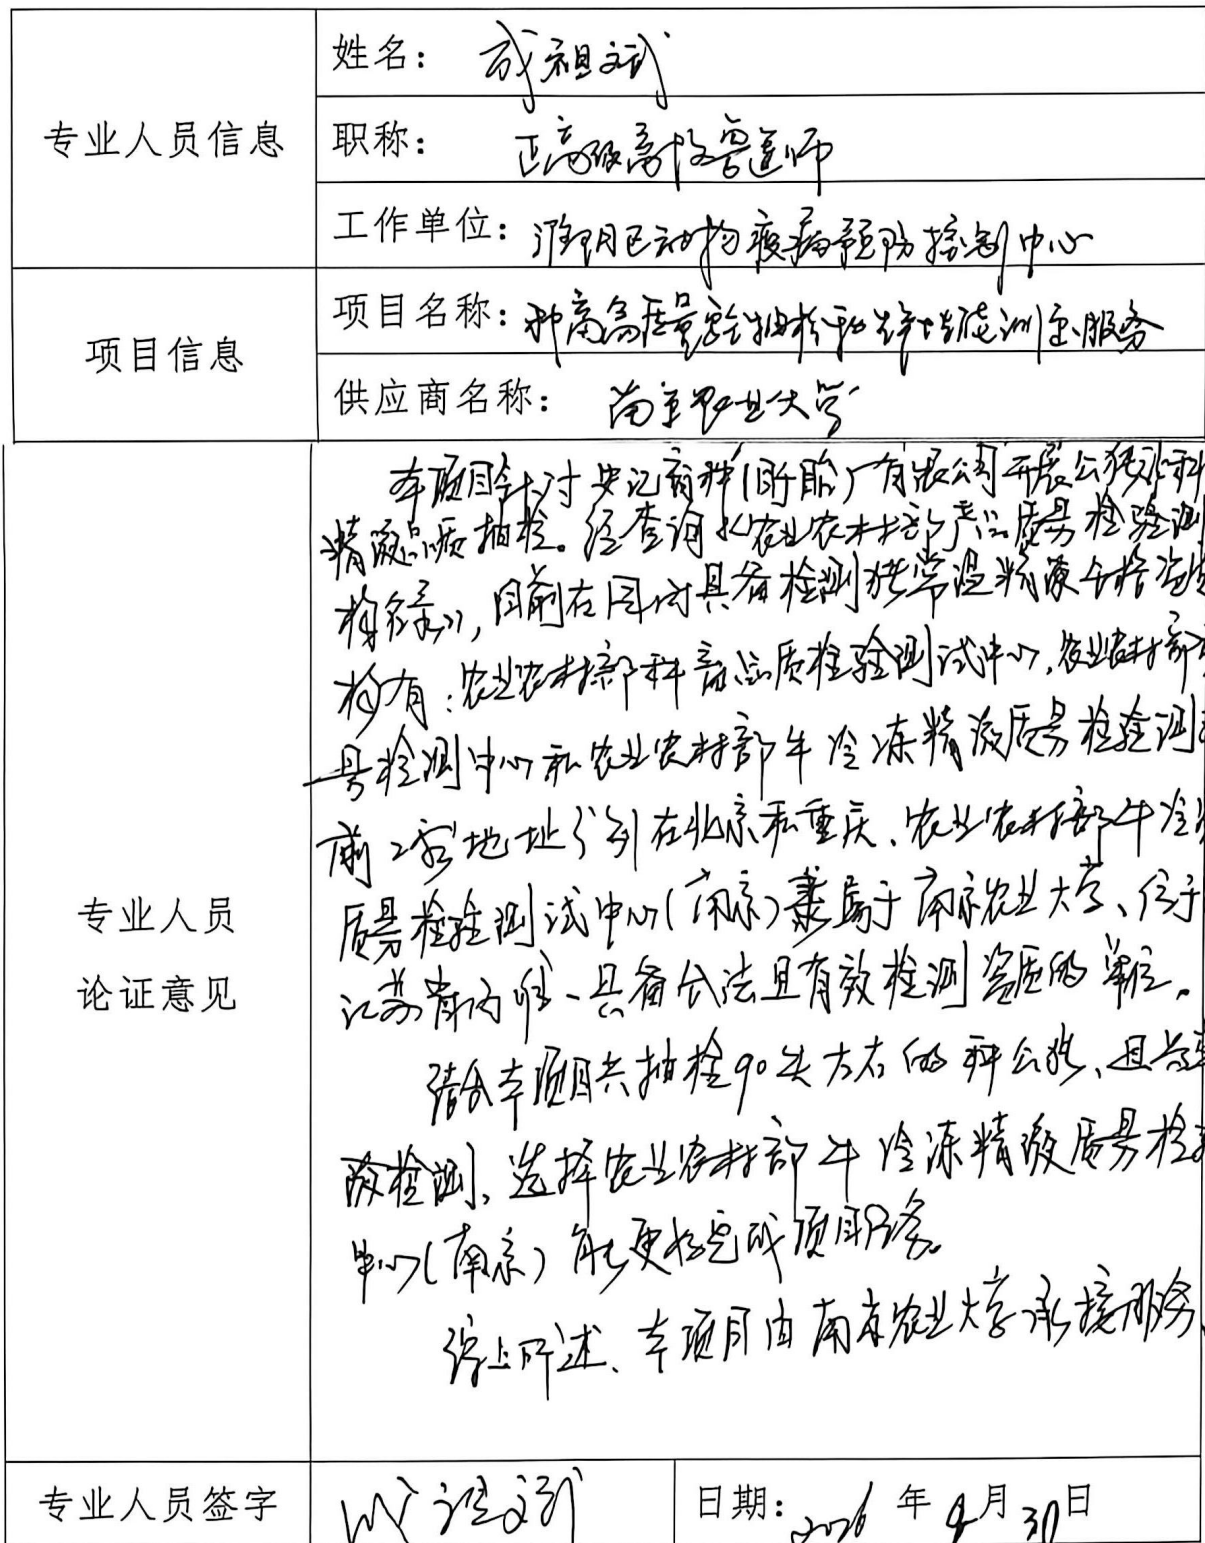 专业人员信息
姓名： 成祖斌
职称： 正高级高级兽医师
工作单位： 淮阴区动物疫病预防控制中心
项目信息
项目名称： 种畜禽质量安全抽检和 性能测定服务
供应商名称： 南京农业大学
专业人员
论证意见
本项目针对安记育种(盱眙)有限公司开展公猪
精液品质抽检。经查询《农业农村部产品质量检验测
构名录》，目前在国内具备检测猪常温精液合格资
构有：农业农村部种畜品质检验测试中心，农业农村部
量检测中心和农业农村部牛冷冻精液质量检验测
前2家地址分别在北京和重庆、农业农村部牛冷
质量检验测试中心(南京)隶属于南京农业大学、位于
江苏省内唯一具备合法且有效检测资质的单位。
结合本项目共抽检90头左右的种公猪、且
液检测、选择农业农村部牛冷冻精液质量检
中心(南京)能更好完成项目服务。
综上所述、本项目由南京农业大学承接服务
专业人员签字
成祖斌
日期：2026年4月30日